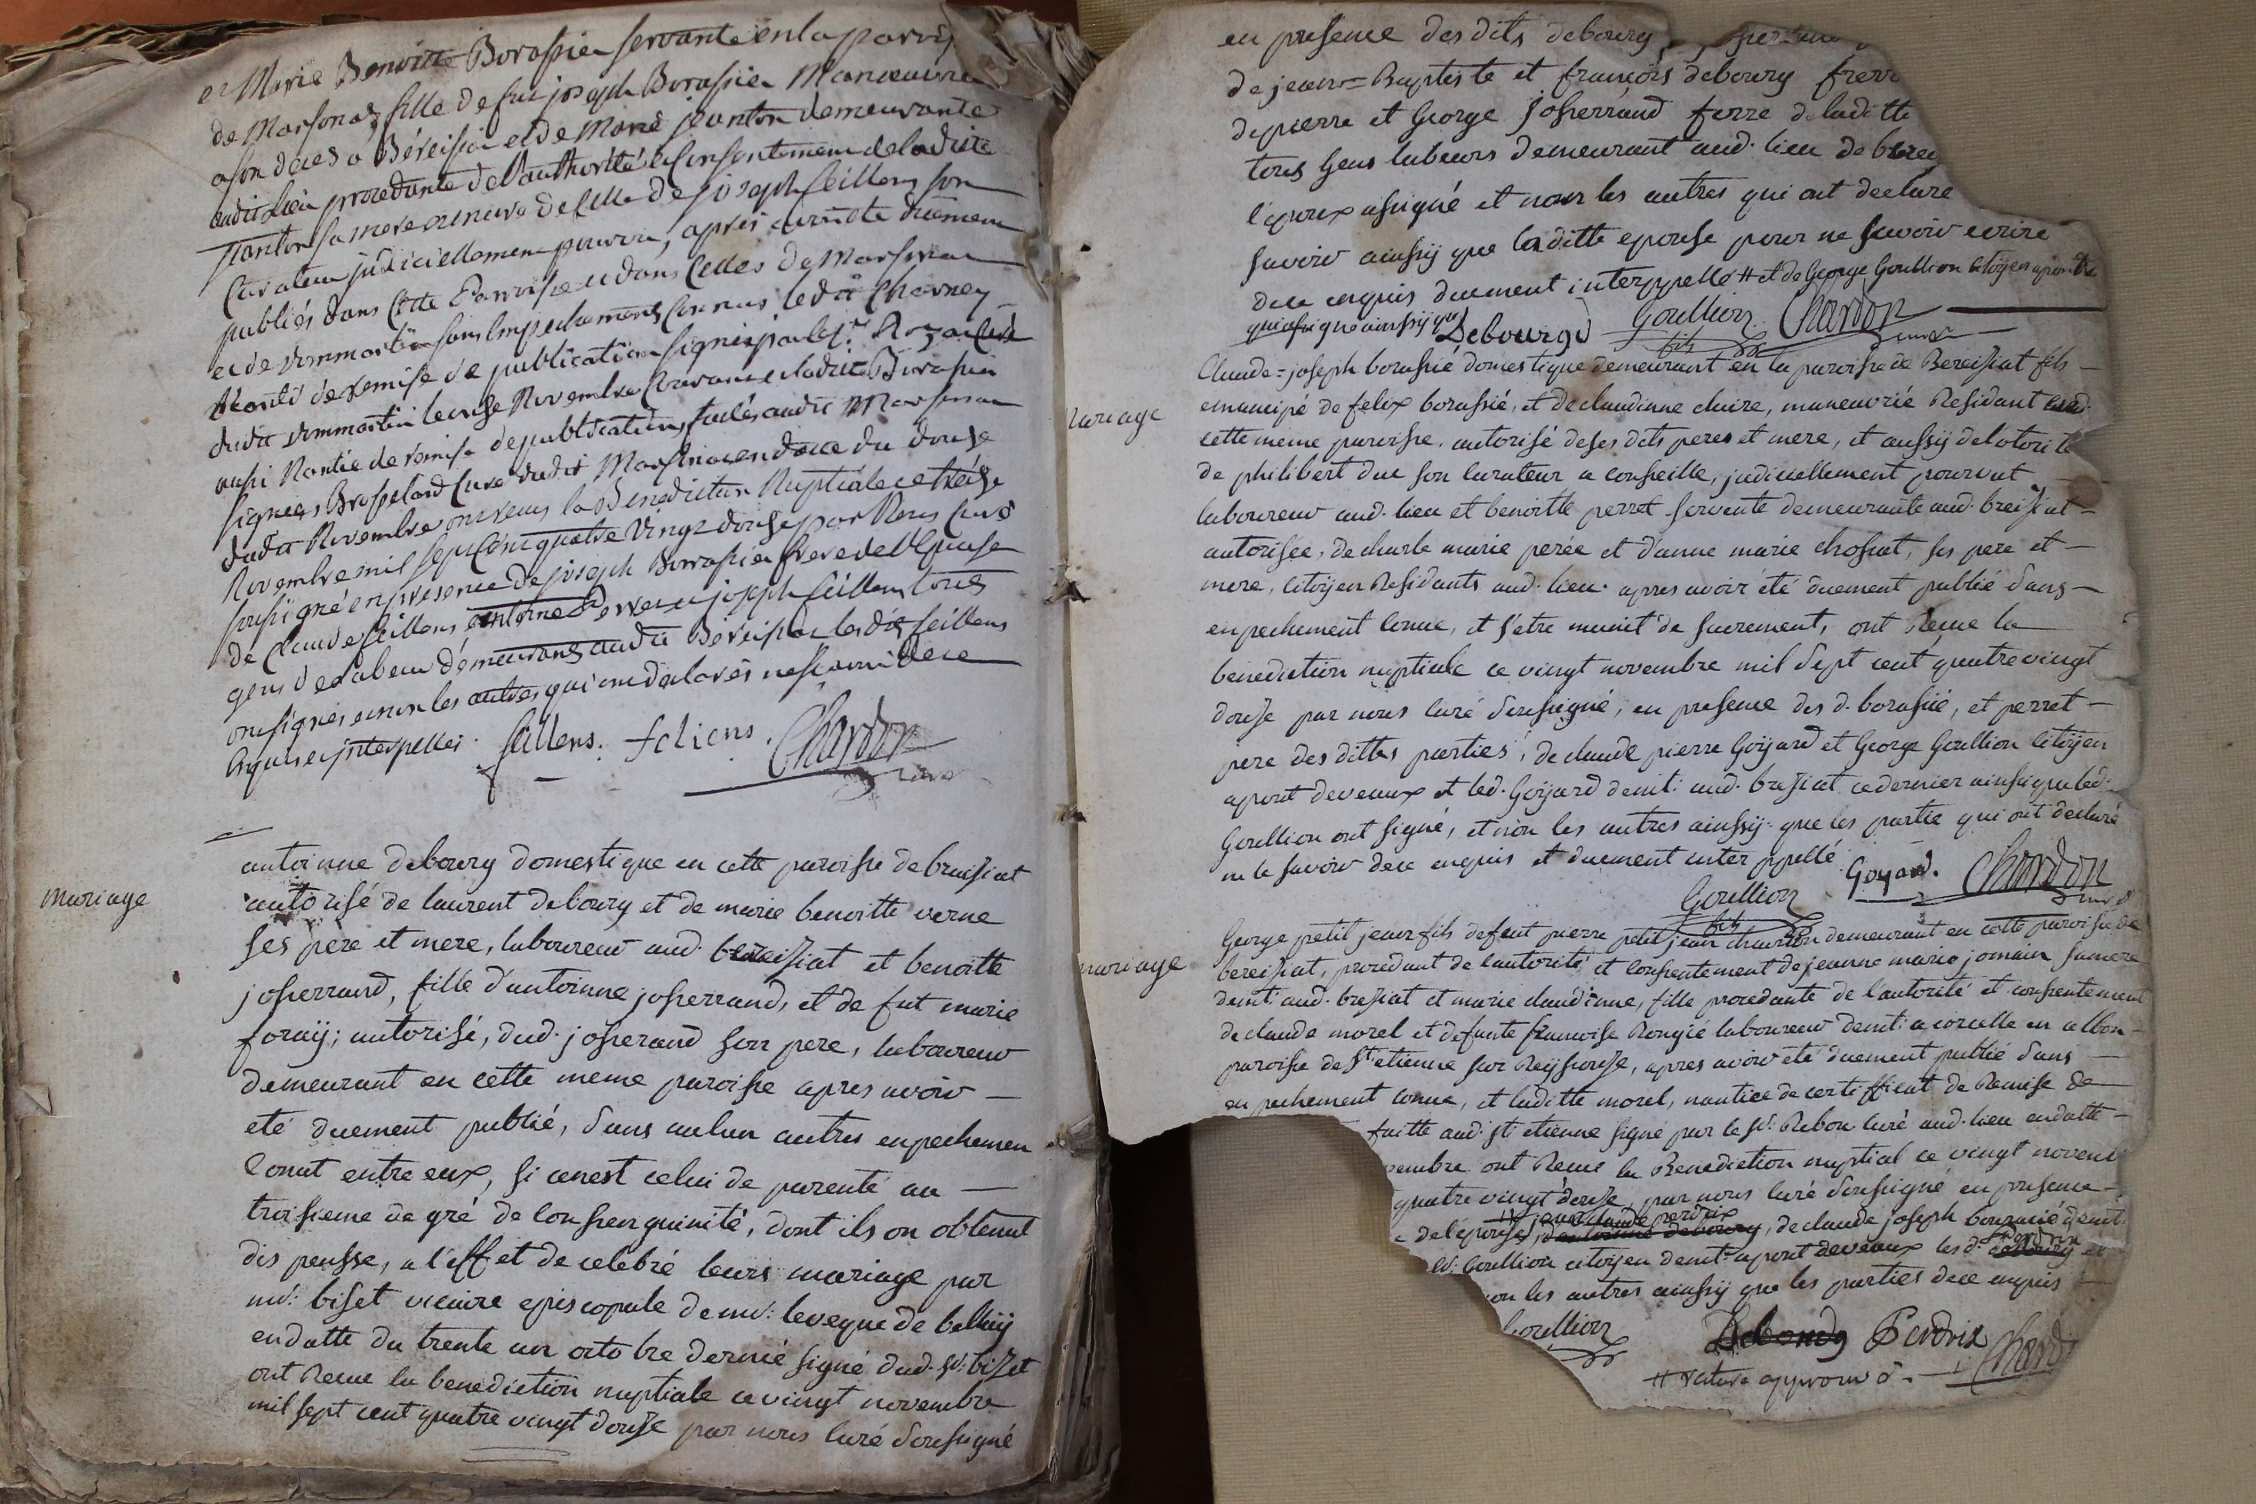 et Marie Benoitte Borassier servante en la parroi
de Marsonas, fille de feu joseph Borassier Manoeuvre
a son deces a Béreisiat et de Marie jeanton demeurante
audit Lieu procedante de l'authorité et Consentement de ladite
jeanton sa mere encore de celle de joseph feillens son
Curateur judiciellement pourvu, apres avoir été düement
publiés dans Cette Parroisse et dans Celles de Marsonas
et de dommartin sans Empechements Connus ledit Charney
Nanti de remise de publication signée par le sr. Curé
dudit dommartin le onze Novembre Courant et ladite Borassier
aussi Nantie de remise de publications faites audit Marsonas
signées Brosselard Curé dudit Marsonas en datte du douze
dudit Novembre ont reçus la Benediction Nuptiale ce treize
Novembre mil sept Cent quatre Vingt douze par Nous Curé
soussigné en presence de joseph Borrassier frere de l'Epouse
de Claude feillens antoine et joseph feillens tous
gens de Labeur demeurants audit Béreisiat lesdits feillens
ont signés et non les autres qui ont déclarés ne sçavoir de ce
Enquis et jnterpellés. feillens. feliens. Chardon
curé
Mariage
antoinne debourg domestique en cette paroisse de breisiat
autorisé de laurent debourg et de marie benoitte verne
ses pere et mere, laboureur aud. bereisiat et benoitte
josserrand, fille d'antoinne josserrand, et de fut marie
foraÿ; autorisé, dud. josserand son pere, laboureur
demeurant en cette meme paroisse apres avoir
eté duement publié, sans aucun autres enpechemen
Conut entre eux, si cenest celui de parenté au
troisieme de gré de Consenguinité, dont ils on obtenut
dis pensse, a l'effet de celébré leurs mariage par
mr: biset vicaire episcopale de mr: leveque de belleÿ
en datte du trente un octobre dernié signé dud. sr: bizet
ont Recue la benediction nuptiale ce vingt novembre
mil sept cent quatre vingt douze par nous Curé Soussigné
en presence des dits debourg
de jean=Baptiste et françois debourg frere
de pierre et George Josserrand frere de laditte
tous Gens labeurs demeurant aud. lieu de
l'epoux a signé et non les autres qui ont declaré
savoir ainssÿ que laditte epouse pour ne savoir ecrire
dece enquis duement interppellé # et de George Goullion citoÿen
qui a signé ainssÿ que Debourg Goullion fils Chardon
curé
Mariage
Claude=joseph borassié domestique demeurant en la paroisse de Bereisiat fils
emancipé de felix borassié, et de claudinne claire, maneuvrié Residant
cette meme paroisse. autorisé deses dits peres et mere, et aussÿ delotorité
de philibert duc son Curateur a conseille, judiciellement pourvut
laboureur aud. lieu et benoitte perret servente demeurante aud. breisiat
autorisée, de charle marie perée et d'anne marie chossat, ses pere et
mere, Citoÿen Residants aud. lieu. apres avoir été duement publié sans
enpechement Connu, et s'etre munit de sacrement, ont Recue la
benediction nuptiale ce vingt novembre mil sept cent quatre vingt
douze par nous Curé Soussigné, en presence des d. borassié, et perret
pere des dittes parties, de claude pierre Goÿard et George Goullion Citoÿen
apont deveaux et led. Goÿard demt: aud. bresiat ce dernier ainssi que led:
Goullion ont signé, et non les autres ainssÿ que les partie qui ont declaré
ne le savoir dece enquis et duement interppellé. Goyard. Chardon
Goullion fils curé
mariage
George petit jean fils defeut pierre petit jean demeurant en cette paroisse de
bereisiat, procedant de l'autorité et Consentement de jeanne marie jomain sa mere
demt: aud. bresiat et marie claudinne, fille procedante de l'autorité et consentement
de claude morel et defunte francoise Rongié laboureur demt: a corcelle en
paroisse de St. etienne sur Reÿssouze, apres avoir eté duement publié sans
en pechement Connu, et laditte morel, nantiee de certifficat de Remise de
faitte aud. st. etienne signé par le sr: Rebon Curé aud. lieu en datte
vembre ont Recue la Benediction nuptial ce vingt novem
quatre vingt douze, par nous Curé Soussigné en presence
# jean claude perdrix
de l'epouse, d'antoinne debourg, de claude joseph demt:
perdrix
sr. Goullion citoyen demt: apont deveaux les d. debourg et
non les autres ainssÿ que les parties dece enquis
Goullion Debourg Perdrix Chard
# rature approuvé.